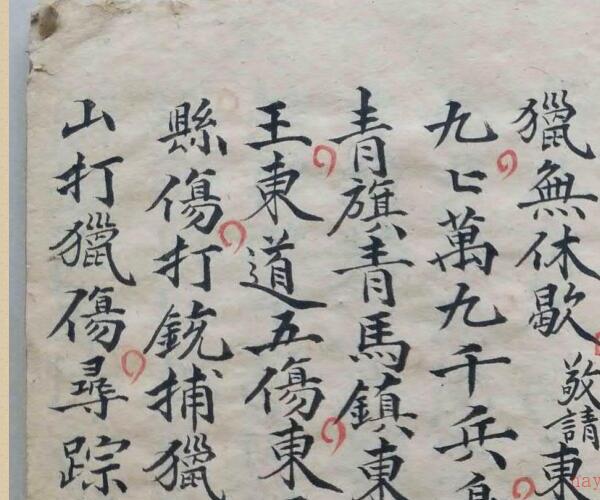 獵無休歇敬請東
九㐅萬九千兵
青旗青馬鎮東
王東道五傷東
縣傷打銃捕獵
山打獵傷尋踪